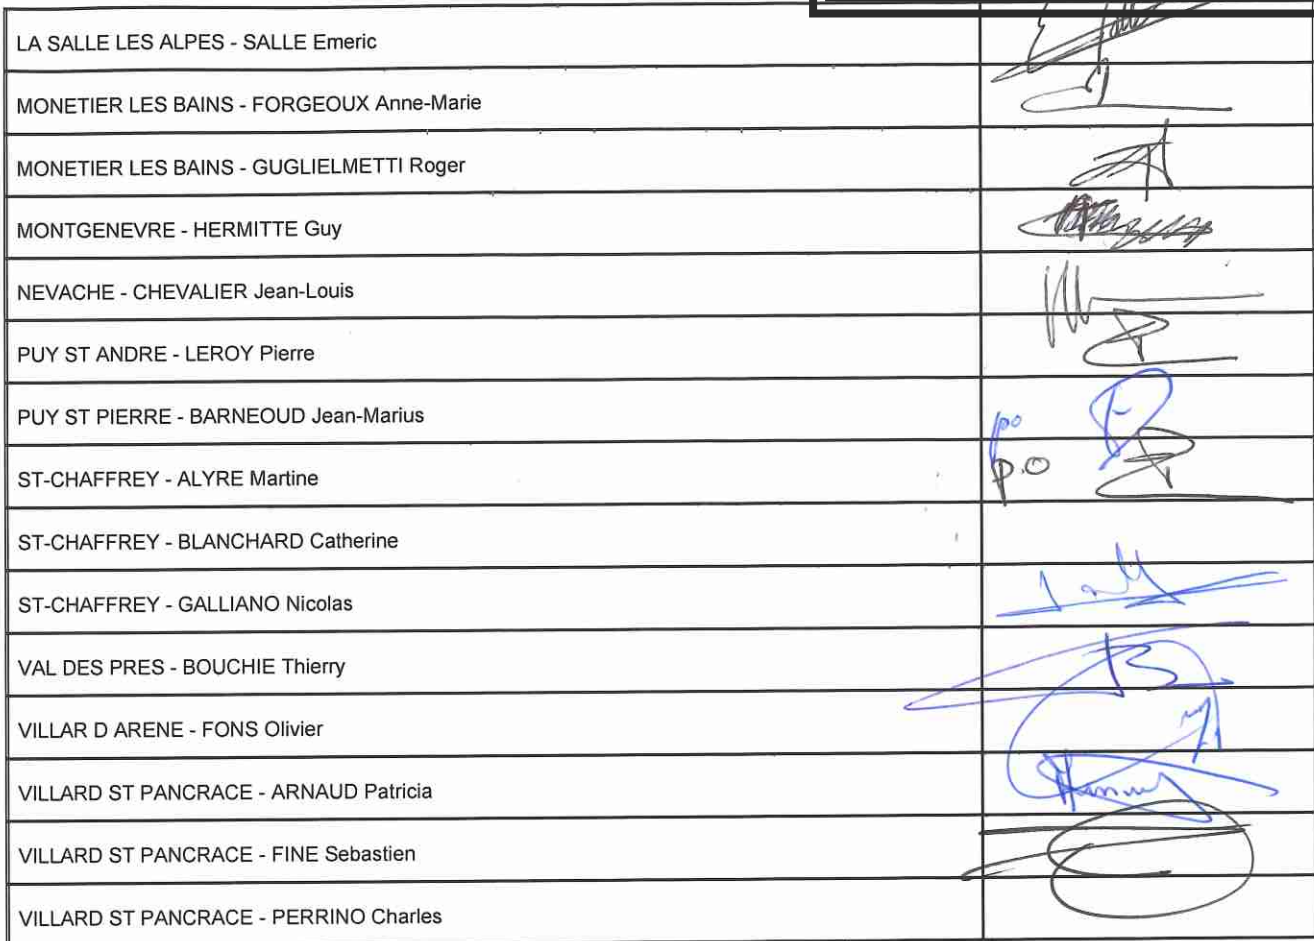 LA SALLE LES ALPES - SALLE Emeric
MONETIER LES BAINS - FORGEOUX Anne-Marie
MONETIER LES BAINS - GUGLIELMETTI Roger
MONTGENEVRE - HERMITTE Guy
NEVACHE - CHEVALIER Jean-Louis
PUY ST ANDRE - LEROY Pierre
PUY ST PIERRE - BARNEOUD Jean-Marius
po
ST-CHAFFREY - ALYRE Martine
p.o
ST-CHAFFREY - BLANCHARD Catherine
ST-CHAFFREY - GALLIANO Nicolas
VAL DES PRES - BOUCHIE Thierry
VILLAR D ARENE - FONS Olivier
VILLARD ST PANCRACE - ARNAUD Patricia
VILLARD ST PANCRACE - FINE Sebastien
VILLARD ST PANCRACE - PERRINO Charles